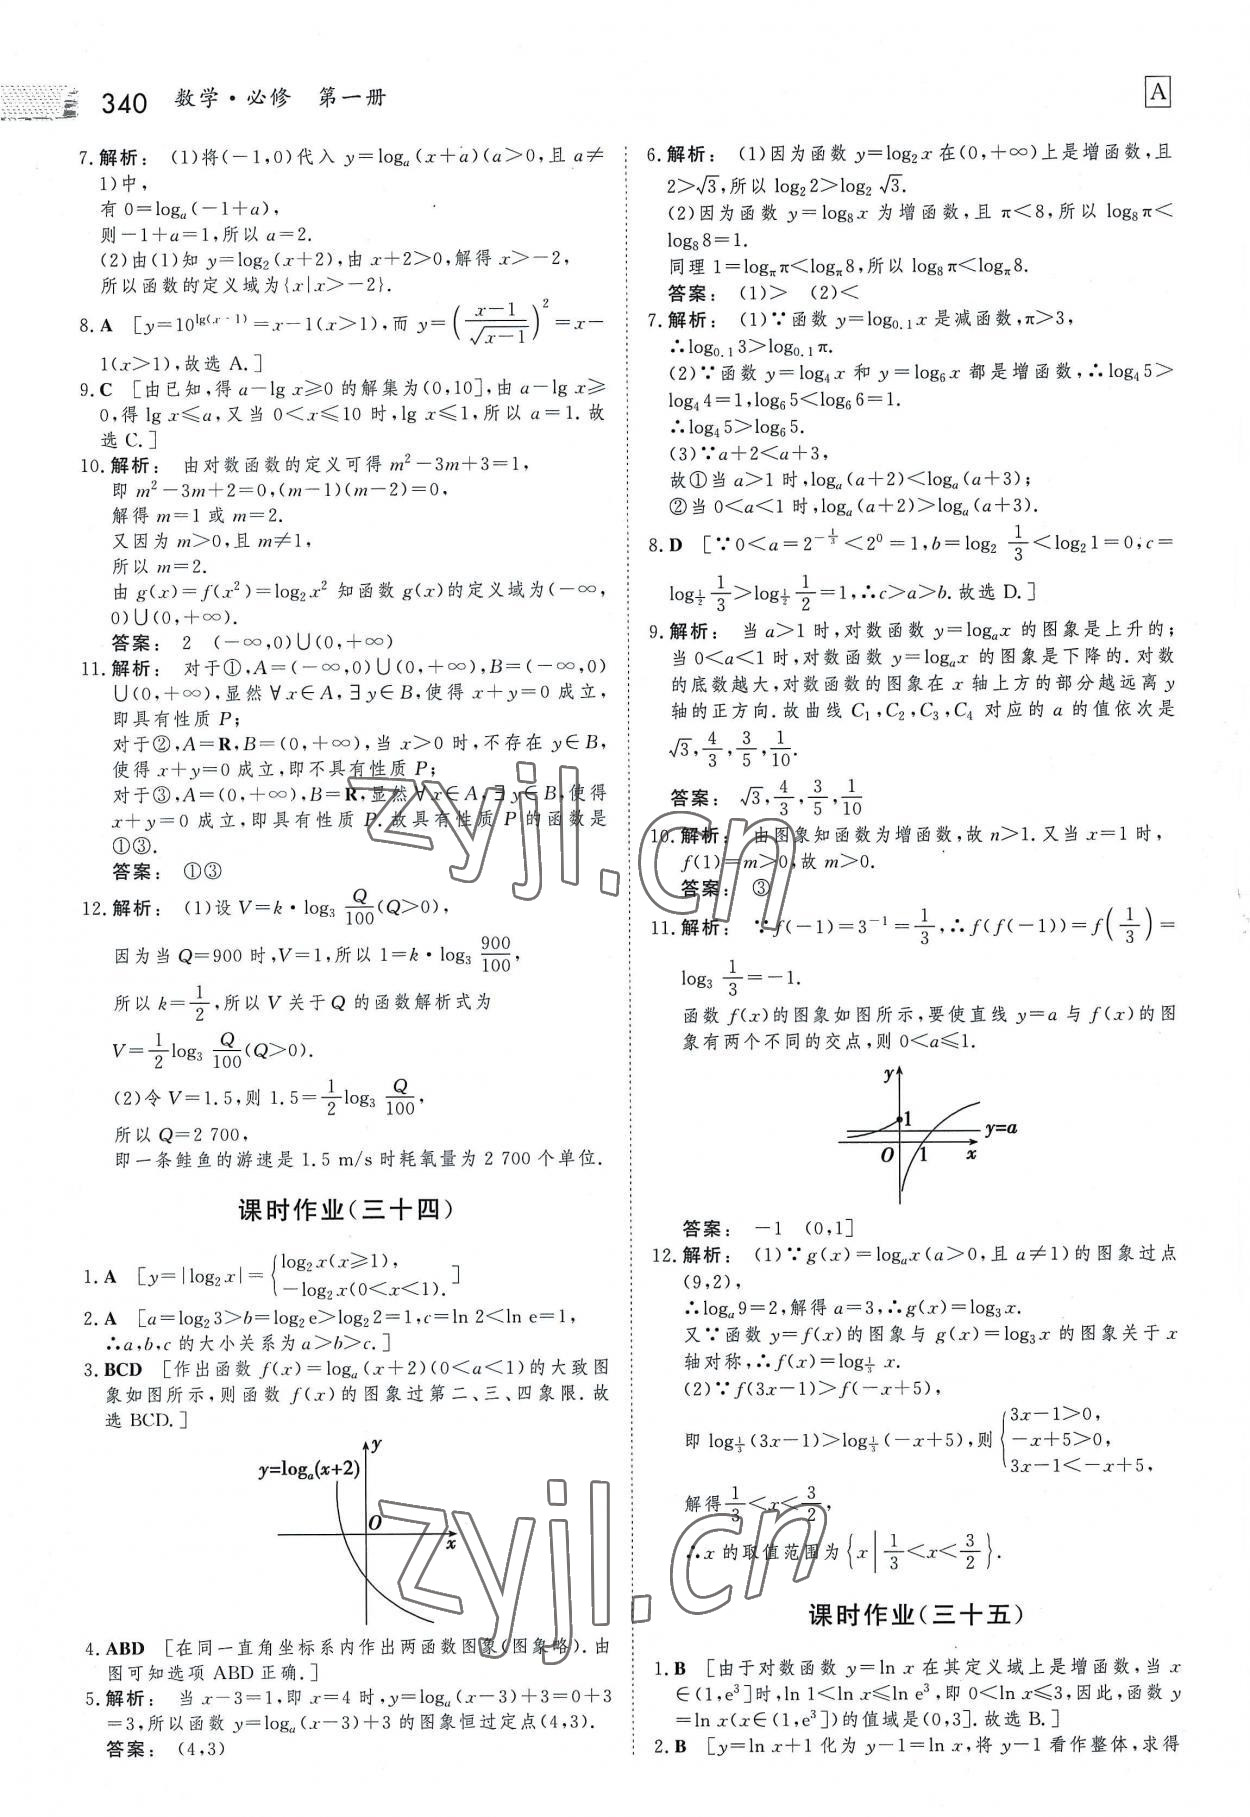 340 数学·必修 第一册
A
7.解析: (1)将(-1,0)代入 y=logₐ(x+a)(a>0,且 a≠
1)中,
有 0=logₐ(-1+a),
则-1+a=1,所以 a=2.
(2)由(1)知 y=log₂(x+2),由 x+2>0,解得 x>-2,
所以函数的定义域为{x|x>-2}.
8.A [y=10^{lg(x-1)}=x-1(x>1),而 y=((x-1)/√(x-1))²=x-
1(x>1),故选 A.]
9.C [由已知,得 a-lg x≥0 的解集为(0,10],由 a-lg x≥
0,得 lg x≤a,又当 0<x≤10 时,lg x≤1,所以 a=1.故
选 C.]
10.解析: 由对数函数的定义可得 m²-3m+3=1,
即 m²-3m+2=0,(m-1)(m-2)=0,
解得 m=1 或 m=2.
又因为 m>0,且 m≠1,
所以 m=2.
由 g(x)=f(x²)=log₂x² 知函数 g(x)的定义域为(-∞,
0)∪(0,+∞).
答案: 2 (-∞,0)∪(0,+∞)
11.解析: 对于①,A=(-∞,0)∪(0,+∞),B=(-∞,0)
∪(0,+∞),显然∀x∈A,∃y∈B,使得 x+y=0 成立,
即具有性质 P;
对于②,A=R,B=(0,+∞),当 x>0 时,不存在 y∈B,
使得 x+y=0 成立,即不具有性质 P;
对于③,A=(0,+∞),B=R,显然∀x∈A,∃y∈B,使得
x+y=0 成立,即具有性质 P.故具有性质 P 的函数是
①③.
答案: ①③
12.解析: (1)设 V=k·log₃ Q/100(Q>0),
因为当 Q=900 时,V=1,所以 1=k·log₃ 900/100,
所以 k=1/2,所以 V 关于 Q 的函数解析式为
V=1/2 log₃ Q/100(Q>0).
(2)令 V=1.5,则 1.5=1/2 log₃ Q/100,
所以 Q=2 700,
即一条鲑鱼的游速是 1.5 m/s 时耗氧量为 2 700 个单位.
课时作业(三十四)
1.A [y=|log₂x|={log₂x(x≥1),
-log₂x(0<x<1).]
2.A [a=log₂3>b=log₂e>log₂2=1,c=ln 2<ln e=1,
∴a,b,c 的大小关系为 a>b>c.]
3.BCD [作出函数 f(x)=logₐ(x+2)(0<a<1)的大致图
象如图所示,则函数 f(x)的图象过第二、三、四象限.故
选 BCD.]
y
y=logₐ(x+2)
O
x
4.ABD [在同一直角坐标系内作出两函数图象(图象略).由
图可知选项 ABD 正确.]
5.解析: 当 x-3=1,即 x=4 时,y=logₐ(x-3)+3=0+3
=3,所以函数 y=logₐ(x-3)+3 的图象恒过定点(4,3).
答案: (4,3)
6.解析: (1)因为函数 y=log₂x 在(0,+∞)上是增函数,且
2>√3,所以 log₂2>log₂ √3.
(2)因为函数 y=log₈x 为增函数,且 π<8,所以 log₈π<
log₈8=1.
同理 1=log_π π<log_π 8,所以 log₈π<log_π 8.
答案: (1)> (2)<
7.解析: (1)∵函数 y=log₀.₁x 是减函数,π>3,
∴log₀.₁3>log₀.₁π.
(2)∵函数 y=log₄x 和 y=log₆x 都是增函数,∴log₄5>
log₄4=1,log₆5<log₆6=1.
∴log₄5>log₆5.
(3)∵a+2<a+3,
故①当 a>1 时,logₐ(a+2)<logₐ(a+3);
②当 0<a<1 时,logₐ(a+2)>logₐ(a+3).
8.D [∵0<a=2^{-1/3}<2⁰=1,b=log₂ 1/3<log₂1=0,c=
log_{1/2} 1/3>log_{1/2} 1/2=1,∴c>a>b.故选 D.]
9.解析: 当 a>1 时,对数函数 y=logₐx 的图象是上升的;
当 0<a<1 时,对数函数 y=logₐx 的图象是下降的.对数
的底数越大,对数函数的图象在 x 轴上方的部分越远离 y
轴的正方向.故曲线 C₁,C₂,C₃,C₄ 对应的 a 的值依次是
√3,4/3,3/5,1/10.
答案: √3,4/3,3/5,1/10
10.解析: 由图象知函数为增函数,故 n>1.又当 x=1 时,
f(1)=m>0,故 m>0.
答案: ③
11.解析: ∵f(-1)=3⁻¹=1/3,∴f(f(-1))=f(1/3)=
log₃ 1/3=-1.
函数 f(x)的图象如图所示,要使直线 y=a 与 f(x)的图
象有两个不同的交点,则 0<a≤1.
y
1
y=a
O 1 x
答案: -1 (0,1]
12.解析: (1)∵g(x)=logₐx(a>0,且 a≠1)的图象过点
(9,2),
∴logₐ9=2,解得 a=3,∴g(x)=log₃x.
又∵函数 y=f(x)的图象与 g(x)=log₃x 的图象关于 x
轴对称,∴f(x)=log_{1/3} x.
(2)∵f(3x-1)>f(-x+5),
即 log_{1/3}(3x-1)>log_{1/3}(-x+5),则{3x-1>0,
-x+5>0,
3x-1<-x+5,
解得1/3<x<3/2,
∴x 的取值范围为{x|1/3<x<3/2}.
课时作业(三十五)
1.B [由于对数函数 y=ln x 在其定义域上是增函数,当 x
∈(1,e³]时,ln 1<ln x≤ln e³,即 0<ln x≤3,因此,函数 y
=ln x(x∈(1,e³])的值域是(0,3].故选 B.]
2.B [y=ln x+1 化为 y-1=ln x,将 y-1 看作整体,求得
zyjl.cn
zyjl.cn